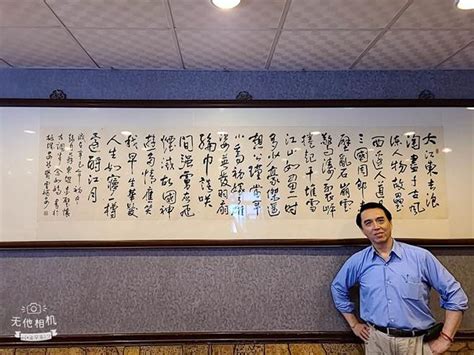 大江東去浪
淘盡千古風
流人物故壘
西邊人道是
三國周郎赤
壁亂石崩雲
驚濤裂岸
捲起千堆雪
江山如畫一時
多少豪傑遙
想公瑾當年
小喬初嫁了雄
姿英發羽扇
綸巾談笑
間強虜灰飛
煙滅故國神
遊多情應笑
我早生華髮
人生如夢一樽
還酹江月
无他相机